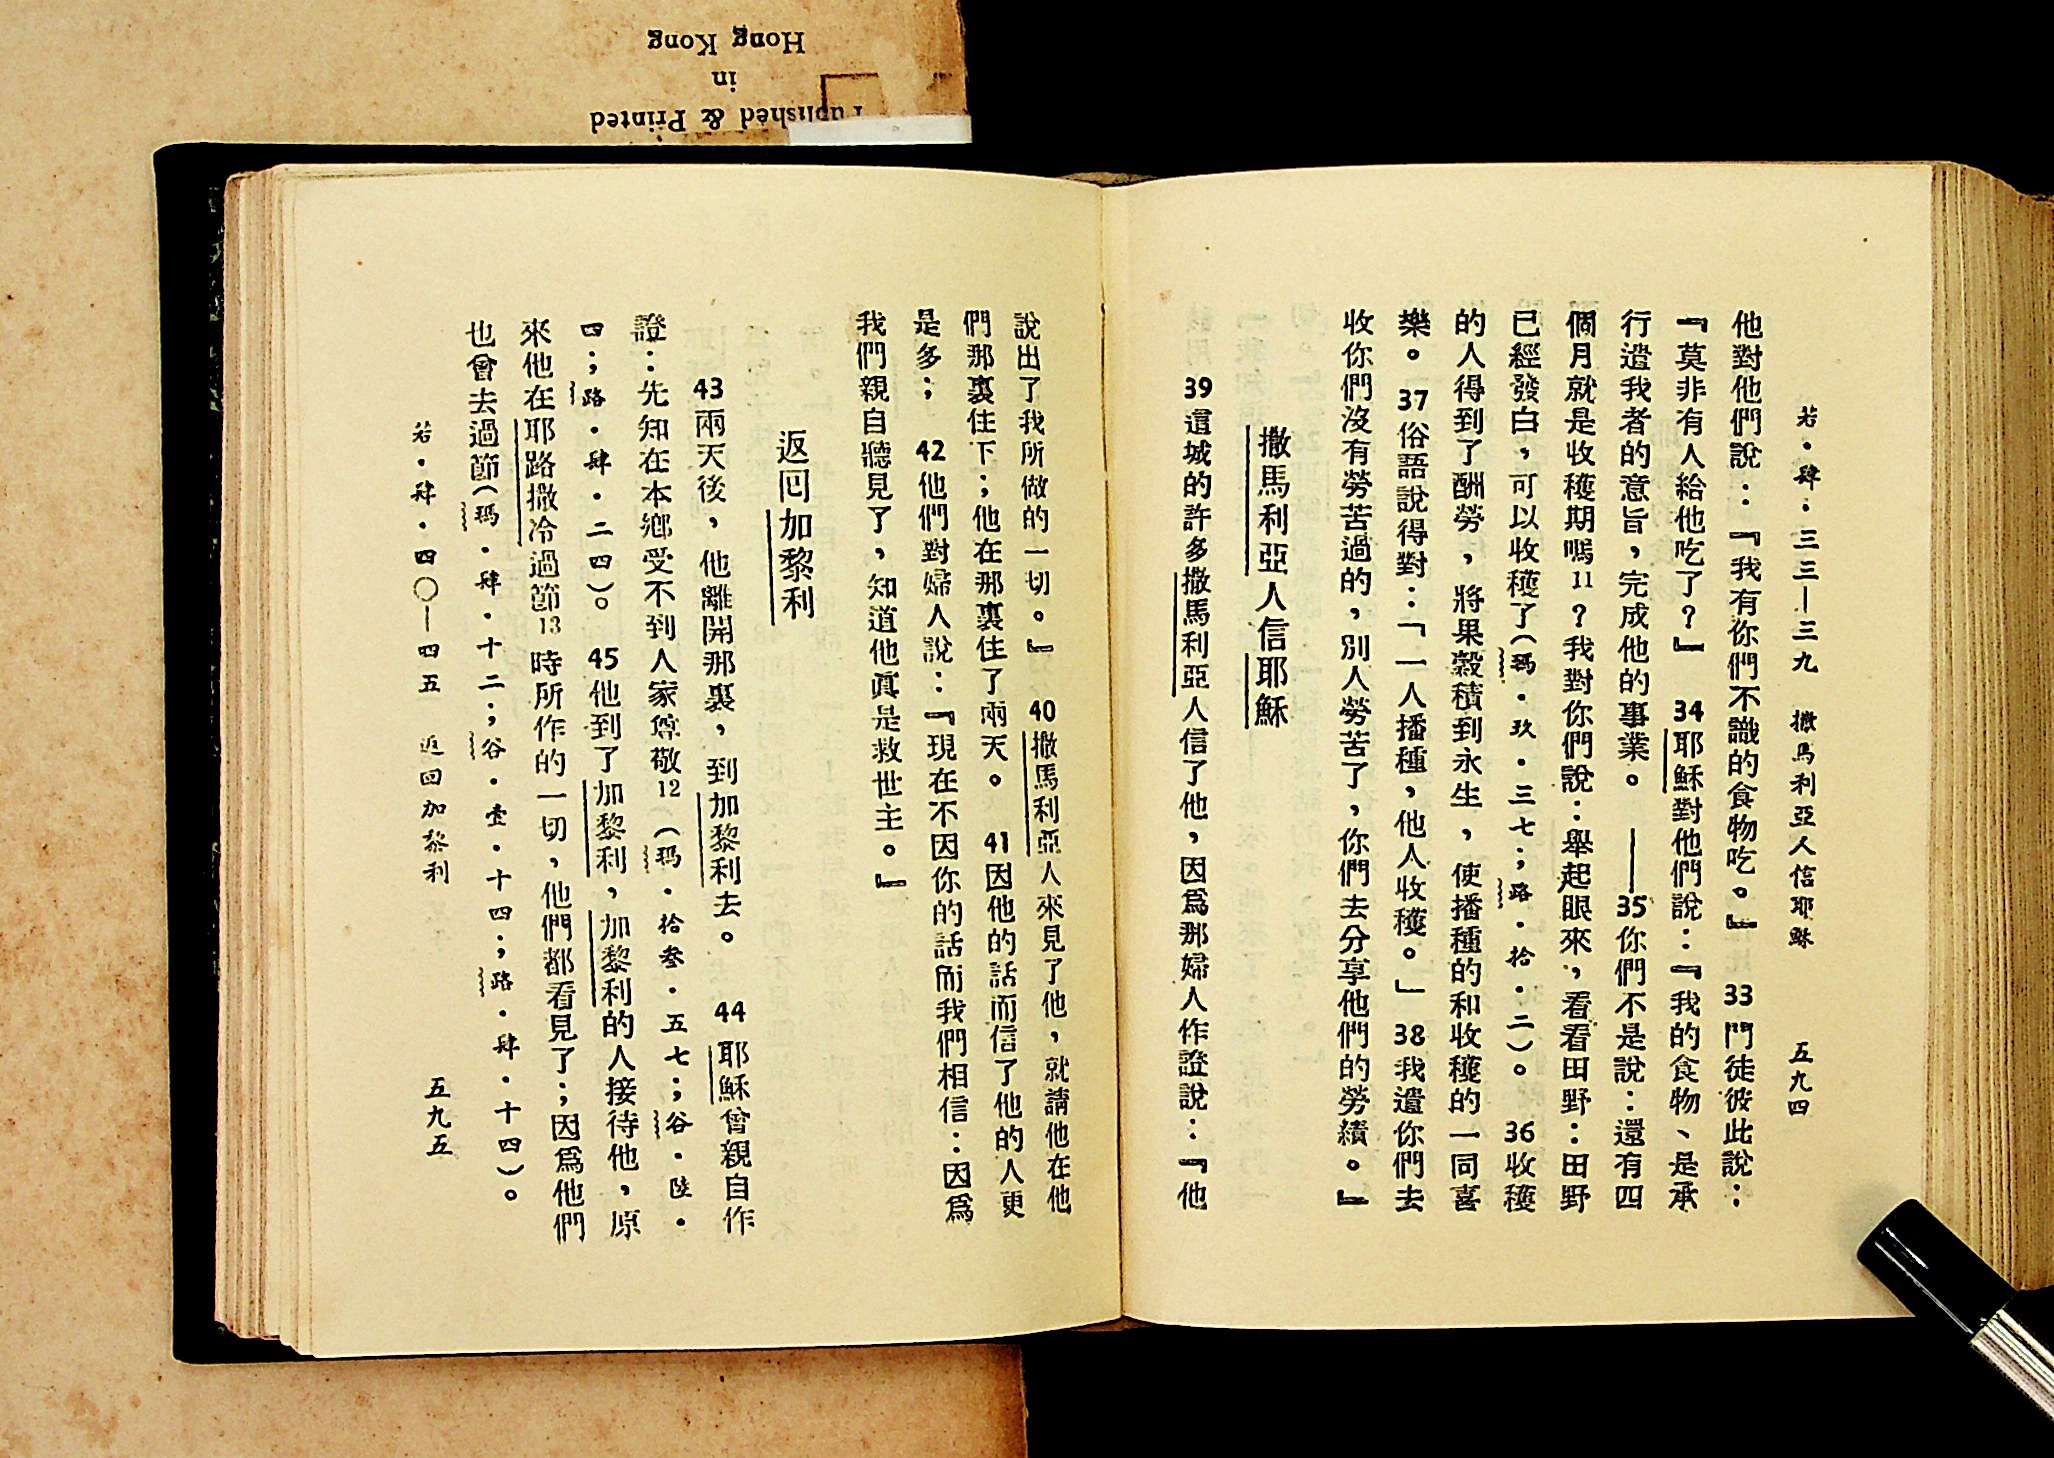 Published & Printed
in
Hong Kong
若·肆：三三—三九 撒馬利亞人信耶穌 五九四
他對他們說：『我有你們不識的食物吃。』 33門徒彼此說：
『莫非有人給他吃了？』 34耶穌對他們說：『我的食物、是承
行遣我者的意旨，完成他的事業。 ——35你們不是說：還有四
個月就是收穫期嗎11？我對你們說：舉起眼來，看看田野：田野
已經發白，可以收穫了（瑪·玖·三七；路·拾·二）。 36收穫
的人得到了酬勞，將果穀積到永生，使播種的和收穫的一同喜
樂。37俗語說得對：「一人播種，他人收穫。」38我遣你們去
收你們沒有勞苦過的，別人勞苦了，你們去分享他們的勞績。』
撒馬利亞人信耶穌
39這城的許多撒馬利亞人信了他，因爲那婦人作證說：『他
說出了我所做的一切。』 40撒馬利亞人來見了他，就請他在他
們那裏住下；他在那裏住了兩天。 41因他的話而信了他的人更
是多； 42他們對婦人說：『現在不因你的話而我們相信：因爲
我們親自聽見了，知道他眞是救世主。』
返回加黎利
43兩天後，他離開那裏，到加黎利去。 44耶穌曾親自作
證：先知在本鄉受不到人家尊敬12（瑪·拾叁·五七；谷·陸·
四；路·肆·二四）。 45他到了加黎利，加黎利的人接待他，原
來他在耶路撒冷過節13時所作的一切，他們都看見了；因爲他們
也曾去過節（瑪·肆·十二；谷·壹·十四；路·肆·十四）。
若·肆·四〇—四五 返回加黎利 五九五